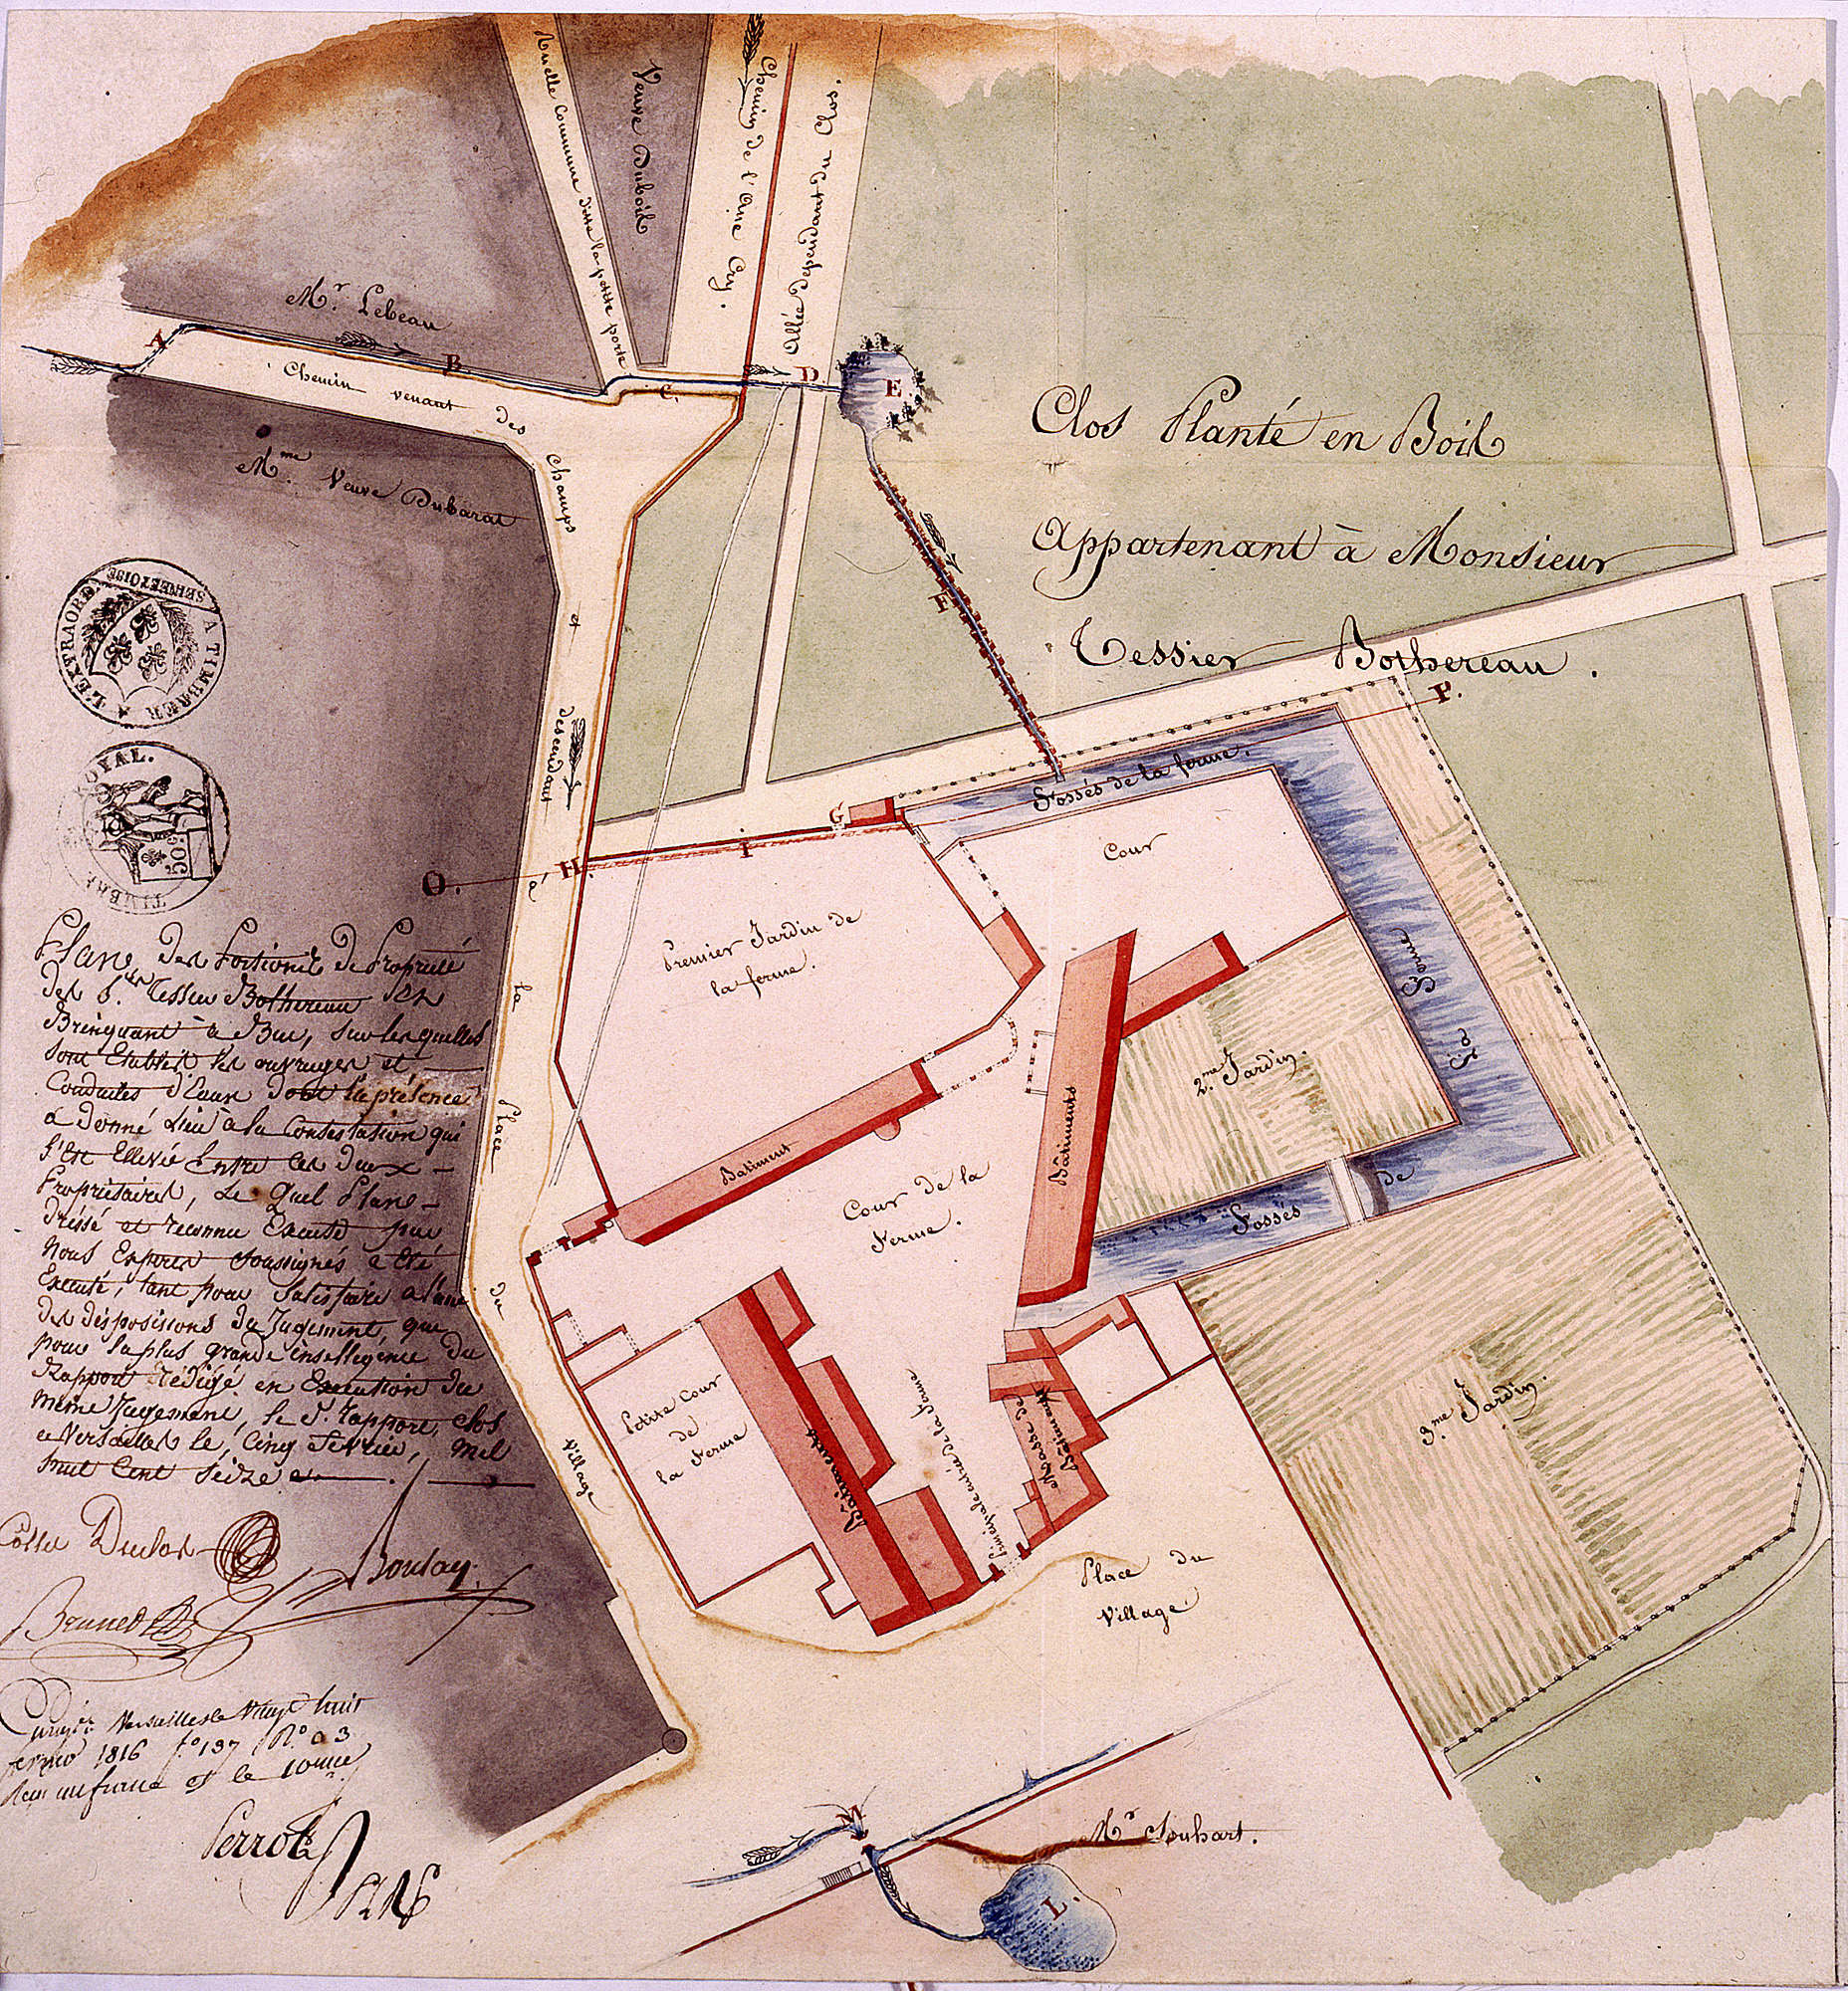 Ruelle Commune ditte la petite porte
Veuve Duboil
Chemin de l'Ane Cry.
Allée dépendant du Clos.
Mr Lebeau
A
B
C.
D
E
Chemin venant des Champs et descendant à la Place du Village
Mme Veuve Dubarat
Clos Planté en Boil
Appartenant à Monsieur
Tessier Bothereau.
F
P.
Fossés de la ferme.
G
I
H.
O.
Cour
Premier Jardin de
la ferme.
L'EXTRAORD.
A TIMBRER
SEINE ET OISE
ROYAL.
TIMBRE
50C
Plan des Portions de Propriété
des Srs Tessier Bothereau
Brinquant à Buc, sur lesquelles
sont Etablis les ouvrages et
Conduites d'Eaux dont la présence
a donné Lieu à la Contestation qui
s'Est Ellevée Entre les deux
Propriétaires, Le Quel Plan
dressé et reconnu Exécuté par
Nous Experts soussignés a été
Executé, tant pour Satisfaire à l'une
des dispositions du Jugement, que
pour la plus grande intelligence du
Rapport rédigé en Execution du
même Jugement, le d. rapport, clos
à Versailles le, Cinq Fevrier, mil
huit Cent Seize
2me Jardin.
Fossés de la Ferme
Batiment
Bâtiments
Cour de la
Ferme.
Petite Cour
de
la Ferme
Bâtiments
Principale entrée de la Ferme
Masse de
Batiments
3me Jardin.
Place du
Village
Boulay
Brunet
Versailles le Vingt huit
1816 fo 137
Perrot
M
Mr Jouhart.
L.